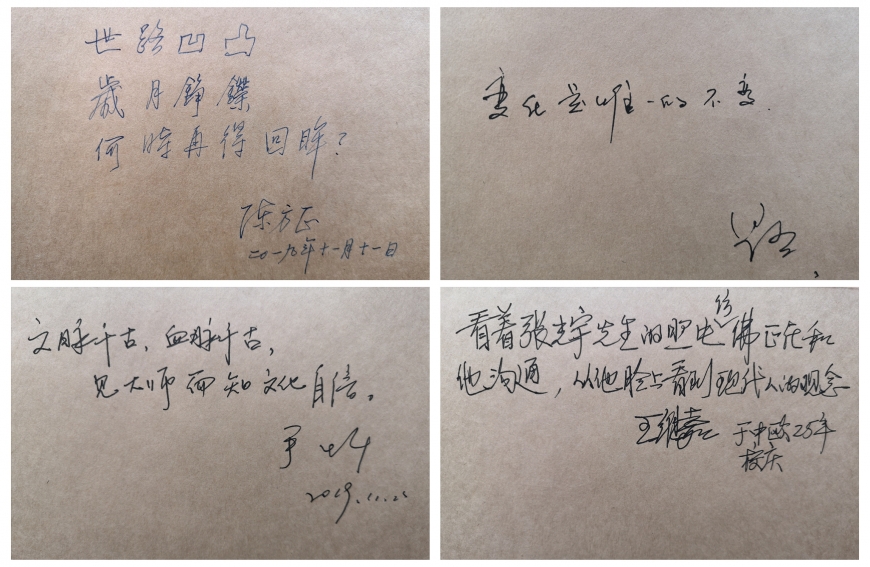 世路凹凸
歲月錚鏗
何時再得回眸？
陈方正
二〇一九年十一月十一日
变化是唯一的不变.
文脉千古、血脉千古，
见大师而知文化自信。
2019.11.21
看着张光宇先生的照片仿佛正在和
他沟通，从他脸上看到现代人的观念
于中欧25年
校庆